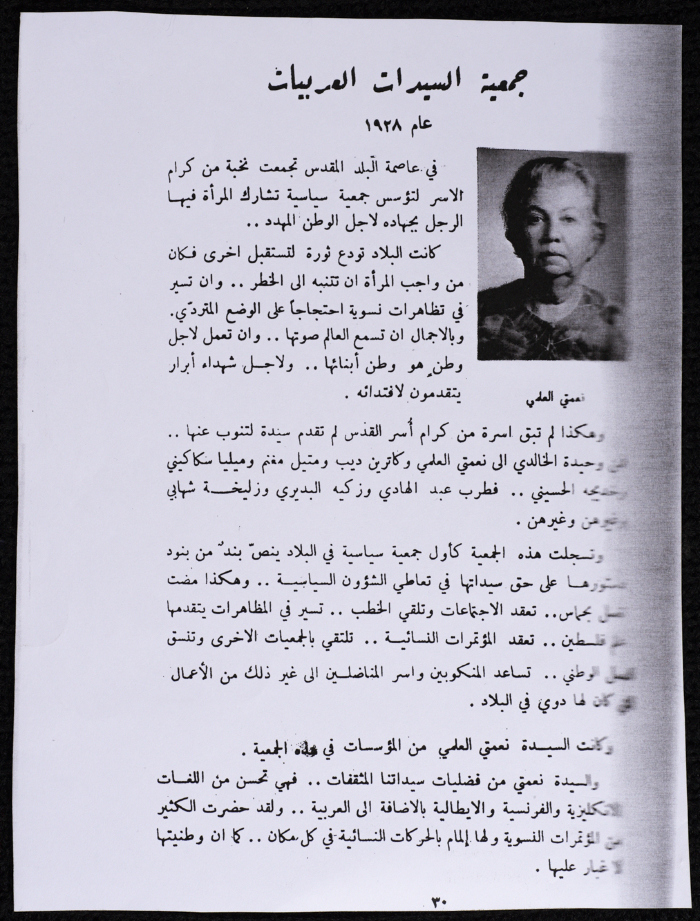 جمعية السيدات العربيات
عام ١٩٢٨
في عاصمة البلد المقدس تجمعت نخبة من كرام
الاسر لتؤسس جمعية سياسية تشارك المرأة فيها
الرجل بجهاده لاجل الوطن المهدد ..
كانت البلاد تودع ثورة لتستقبل اخرى فكان
من واجب المرأة ان تتنبه الى الخطر .. وان تسير
في تظاهرات نسوية احتجاجاً على الوضع المتردّي.
وبالاجمال ان تسمع العالم صوتها .. وان تعمل لاجل
وطنٍ هو وطن أبنائها .. ولاجل شهداء أبرار
يتقدمون لافتدائه .
نعمتي العلمي
وهكذا لم تبق اسرة من كرام أُسر القدس لم تقدم سيدة لتنوب عنها ..
وحيدة الخالدي الى نعمتي العلمي وكاترين ديب ومتيل مغنم وميليا سكاكيني
وخديجه الحسيني .. فطرب عبد الهادي وزكيه البديري وزليخة شهابي
وغيرهن وغيرهن .
وتسجلت هذه الجمعية كأول جمعية سياسية في البلاد ينصّ بندٌ من بنود
دستورها على حق سيداتها في تعاطي الشؤون السياسية .. وهكذا مضت
تعمل بحماس .. تعقد الاجتماعات وتلقي الخطب .. تسير في المظاهرات يتقدمها
علم فلسطين .. تعقد المؤتمرات النسائية .. تلتقي بالجمعيات الاخرى وتنسق
العمل الوطني .. تساعد المنكوبين واسر المناضلين الى غير ذلك من الأعمال
التي كان لها دوي في البلاد .
وكانت السيدة نعمتي العلمي من المؤسسات في هذه الجمعية .
والسيدة نعمتي من فضليات سيداتنا المثقفات .. فهي تحسن من اللغات
الانكليزية والفرنسية والايطالية بالاضافة الى العربية .. ولقد حضرت الكثير
من المؤتمرات النسوية ولها إلمام بالحركات النسائية في كل مكان .. كما ان وطنيتها
لا غبار عليها .
٣٠